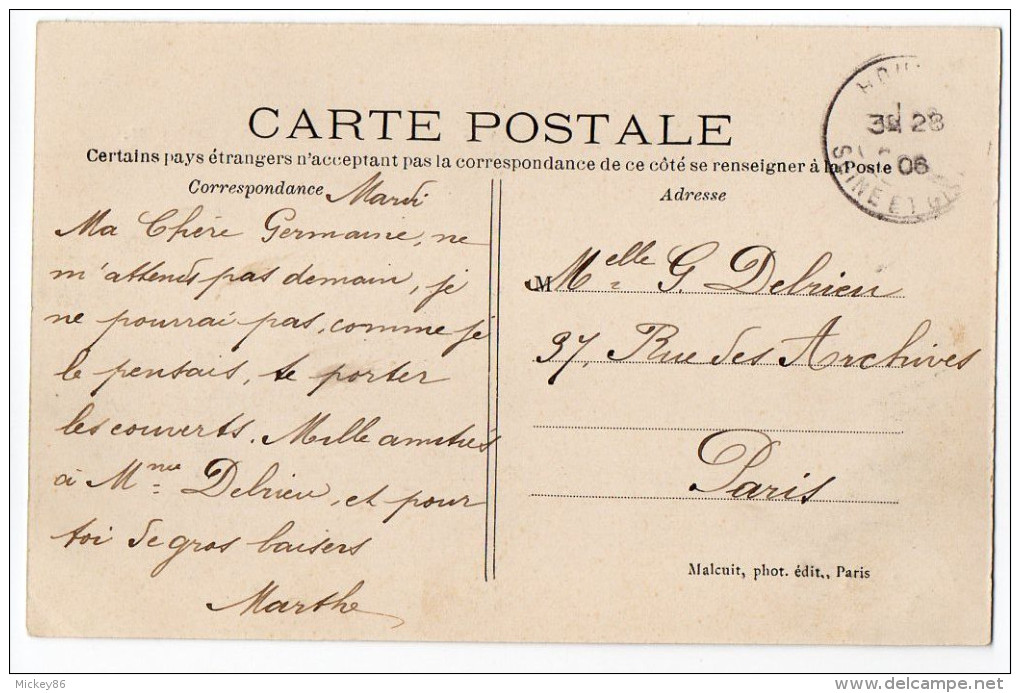 CARTE POSTALE
Certains pays étrangers n'acceptant pas la correspondance de ce côté se renseigner à la Poste
Correspondance
Mardi
Ma Chère Germaine, ne
m'attends pas demain, je
ne pourrai pas, comme je
le pensais, te porter
les couverts. Mille amitiés
à Mme Debrieu, et pour
toi de gros baisers
Marthe
Adresse
M Melle G. Debrieu
37, Rue des Archives
Paris
Malcuit, phot. édit., Paris
HOU
28
06
SEINE ET
Mickey86
delcampe.net